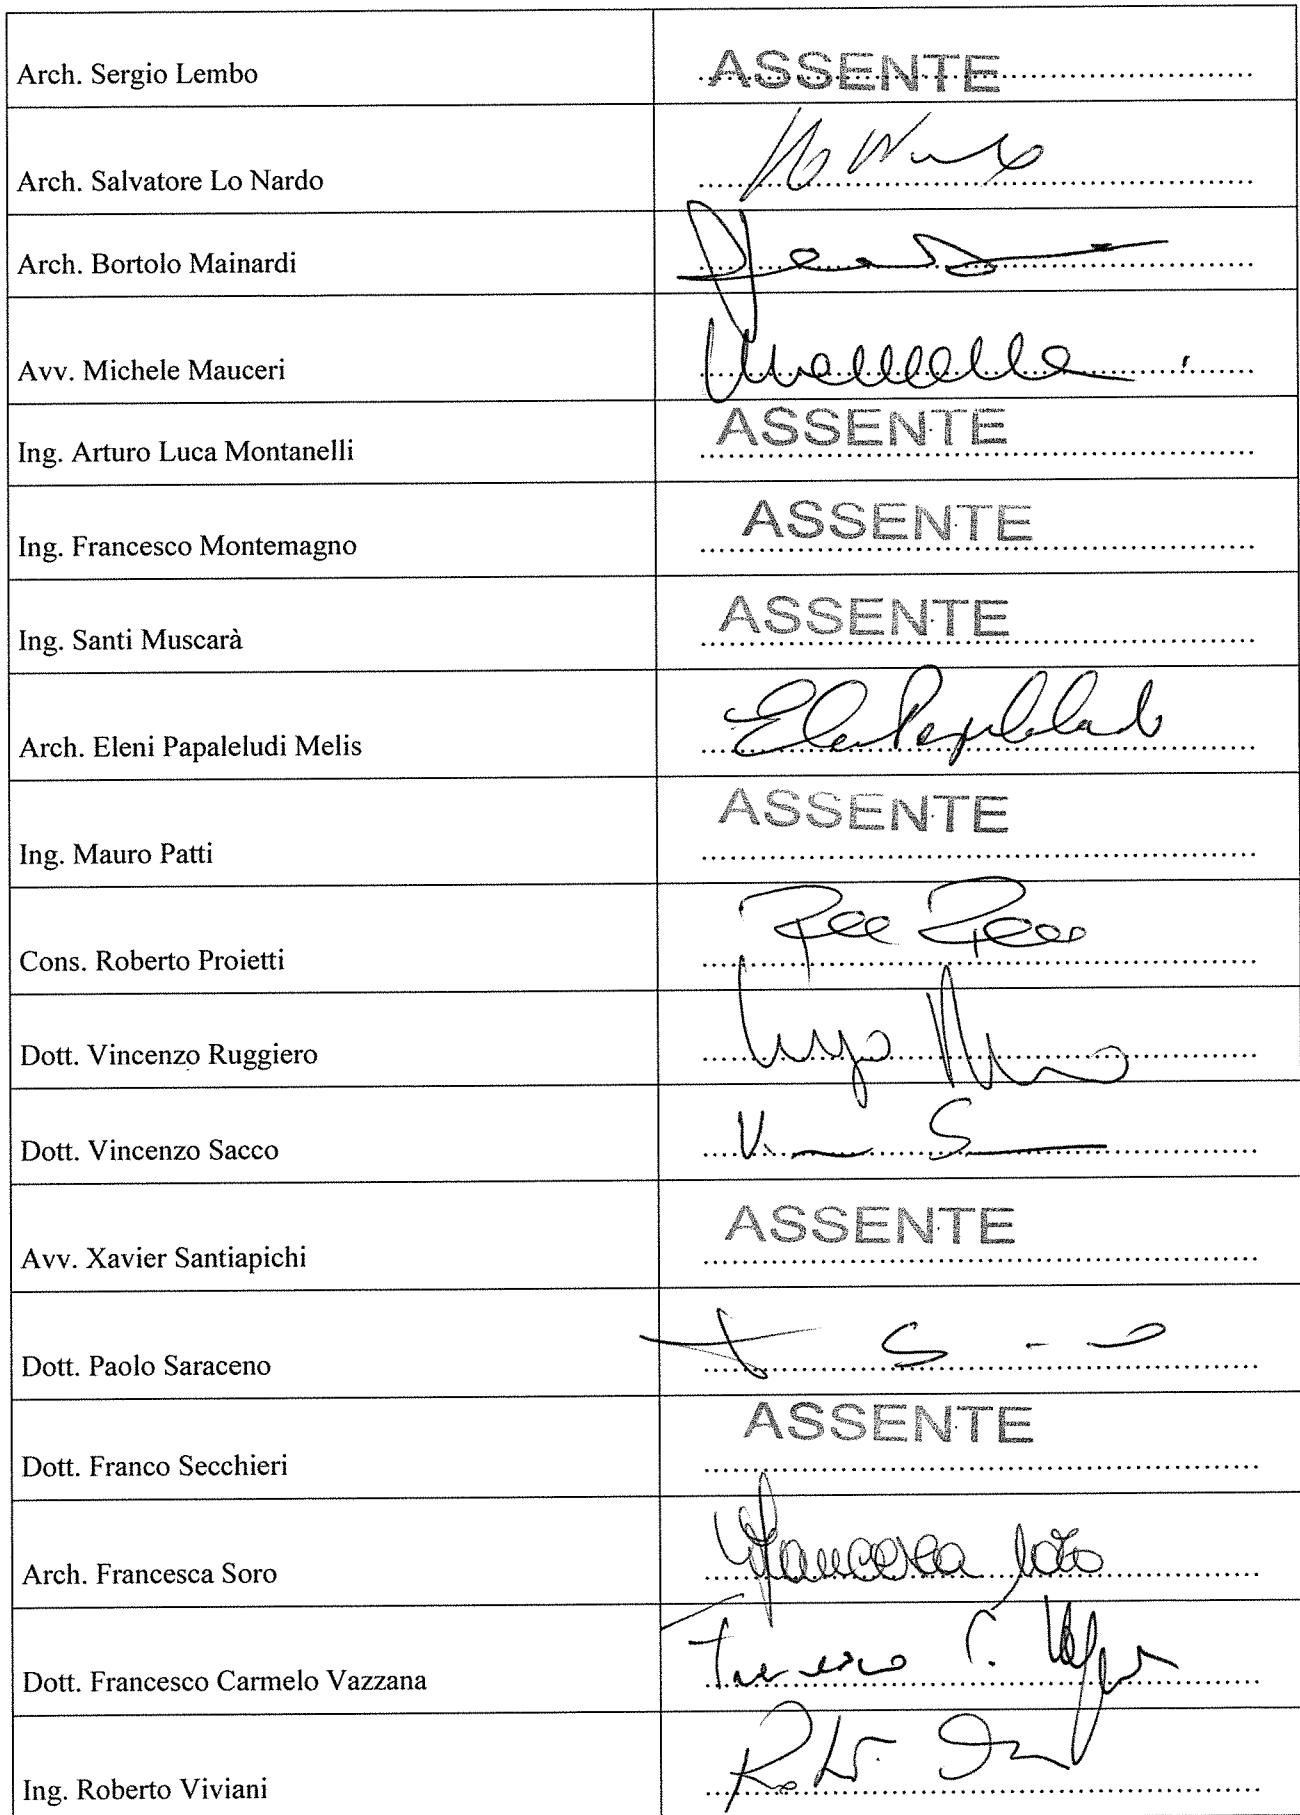 Arch. Sergio Lembo ASSENTE
Arch. Salvatore Lo Nardo
Arch. Bortolo Mainardi
Avv. Michele Mauceri
Ing. Arturo Luca Montanelli ASSENTE
Ing. Francesco Montemagno ASSENTE
Ing. Santi Muscarà ASSENTE
Arch. Eleni Papaleludi Melis
Ing. Mauro Patti ASSENTE
Cons. Roberto Proietti
Dott. Vincenzo Ruggiero
Dott. Vincenzo Sacco
Avv. Xavier Santiapichi ASSENTE
Dott. Paolo Saraceno
Dott. Franco Secchieri ASSENTE
Arch. Francesca Soro Francesca Soro
Dott. Francesco Carmelo Vazzana
Ing. Roberto Viviani